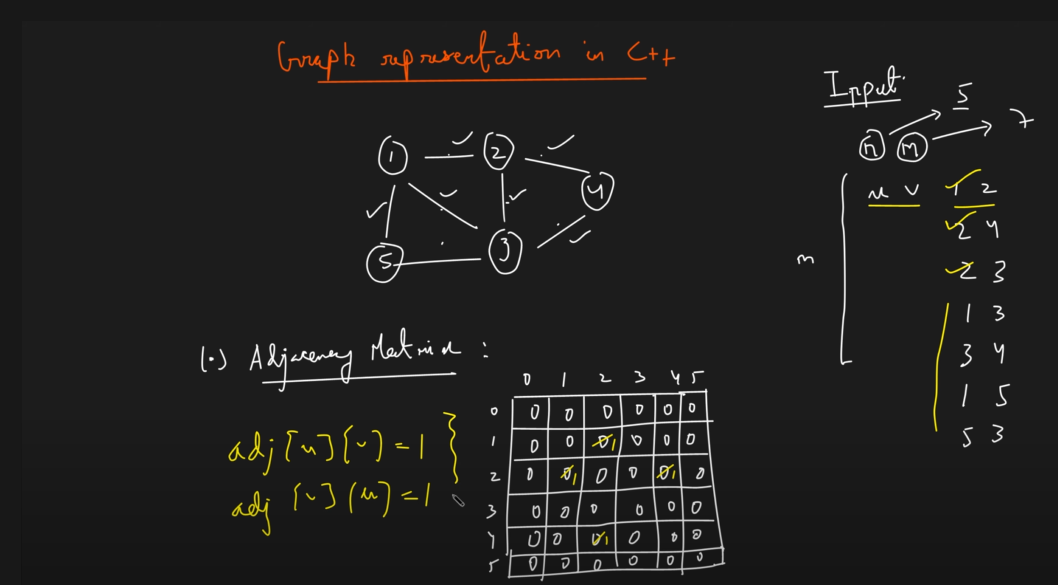 Graph representation in C++
Input:
n m
5
7
m
u v
1 2
2 4
2 3
1 3
3 4
1 5
5 3
1
2
4
5
3
(.) Adjacency Matrix :
adj [u] [v] = 1
adj [v] [u] = 1
0 1 2 3 4 5
0 0 0 0 0 0 0
1 0 0 0 1 0 0 0
2 0 0 1 0 0 0 1 0
3 0 0 0 0 0 0
4 0 0 0 1 0 0 0
5 0 0 0 0 0 0